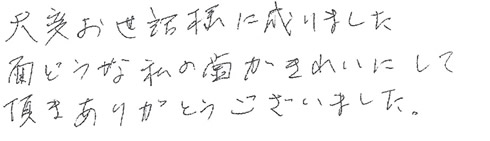 大変お世話様に成りました
面どうな私の歯がきれいにして
頂きありがとうございました。